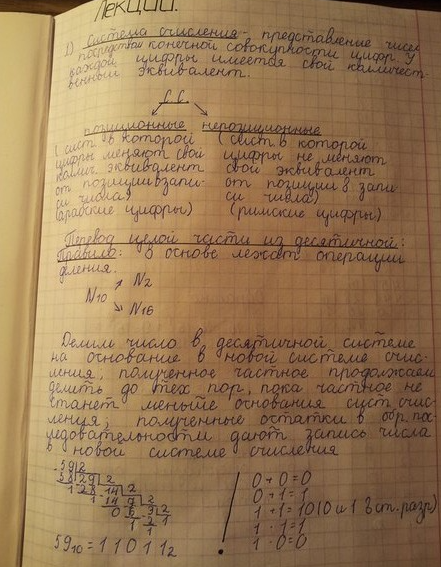 Лекции.
1) Система счисления - представление чисел
посредствам конечной совокупности цифр. У
каждой цифры имеется свой количест-
венный эквивалент.
С.С.
позиционные непозиционные
(сист. в которой (сист. в которой
цифры меняют свой цифры не меняют
колич. эквивалент свой эквивалент
от позиции в запи- от позиции в запи
си числа) си числа)
(арабские цифры) (римские цифры)
Перевод целой части из десятичной:
Правило: В основе лежат операции
деления.
N2
N10
N16
Делим число в десятичной системе
на основание в новой системе счис-
ления, полученное частное продолжаем
делить до тех пор, пока частное не
станет меньше основания сист счис-
ления, полученные остатки в обр. пос
ледовательности дают запись числа
в новой системе счисления
59 2
58 29 2 0 + 0 = 0
1 28 14 2 0 + 1 = 1
1 14 7 2 1 + 1 = 10 (0 и 1 в ст. разр)
0 6 3 2 1 · 1 = 1
1 2 1 1 · 0 = 0
1
5910 = 1 1 0 1 1 2